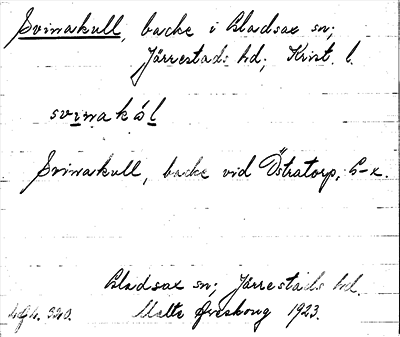 Svinakull, backe i Bladsax sn;
Järrestads hd; Krist. l.
svinakól
Svinakull, backe vid Östratorp,
Bladsax sn; Järrestads hd.
Malte 1923.